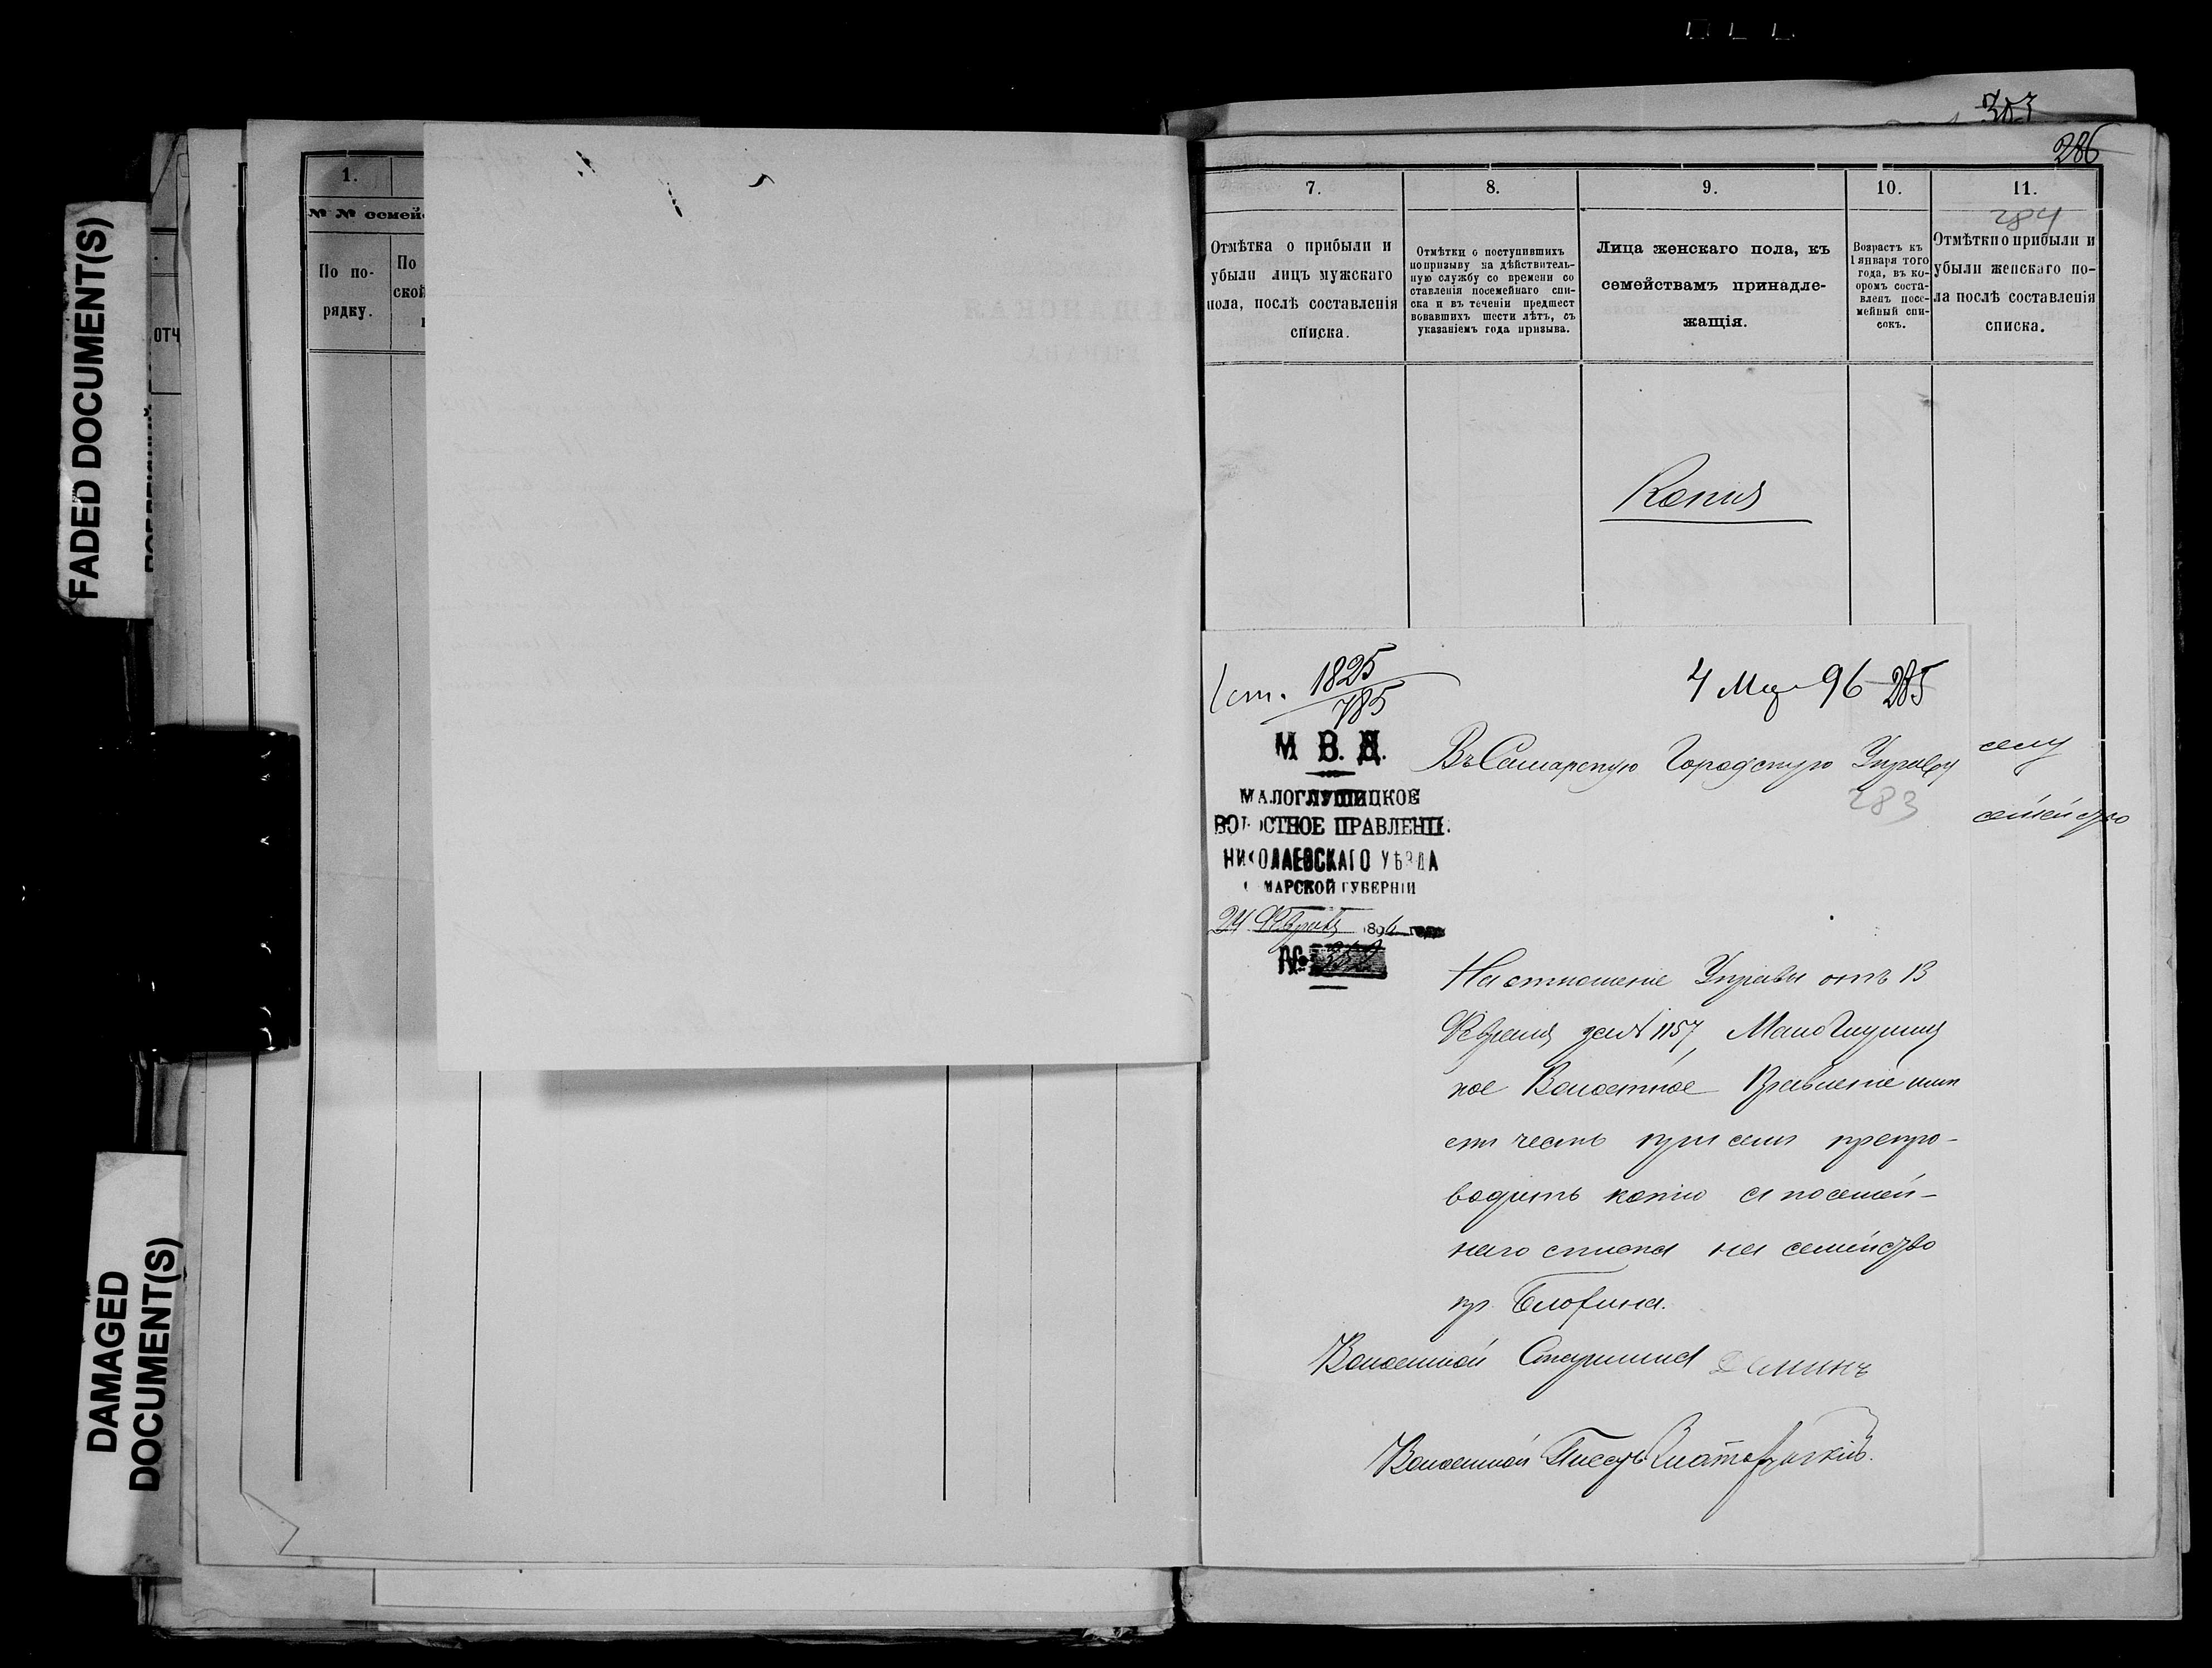 FADED DOCUMENT(S)
DAMAGED
DOCUMENT(S)
ОТЧ
1.
№ № семей
По по-
рядку.
По
ской
286
7.
Отмѣтка о прибыли и
убыли лицъ мужскаго
пола, послѣ составленія
списка.
8.
Отмѣтки о поступившихъ
по призыву на дѣйствитель-
ную службу со времени со
ставленія посемейнаго спи-
ска и въ теченіи предшест
вовавшихъ шести лѣтъ, съ
указаніемъ года призыва.
9.
Лица женскаго пола, къ
семействамъ принадле-
жащія.
10.
Возрастъ къ
1 января того
года, въ ко-
оромъ соста-
вленъ посе-
мейный спи-
сокъ.
11.
284
Отмѣтки о прибыли и
убыли женскаго по-
ла послѣ составленія
списка.
Копія
1825
785
4 Мар 96
285
М. В. Д.
МАЛОГЛУШИЦКОЕ
ВОЛОСТНОЕ ПРАВЛЕНІЕ
НИКОЛАЕВСКАГО УѢЗДА
САМАРСКОЙ ГУБЕРНІИ
24 Февраля 1896 года
№ 352
Въ Самарскую Городскую Управу
283
селу
семейство
На отношеніе Управы отъ 13
Февраля за № 1157, МалоГлушиц
кое Волостное Правленіе имѣ
етъ честь при семъ препро-
водить копію съ посемей-
наго списка на семейство
кр. Блохина.
Волостной Старшина Деминъ
Волостной Писарь